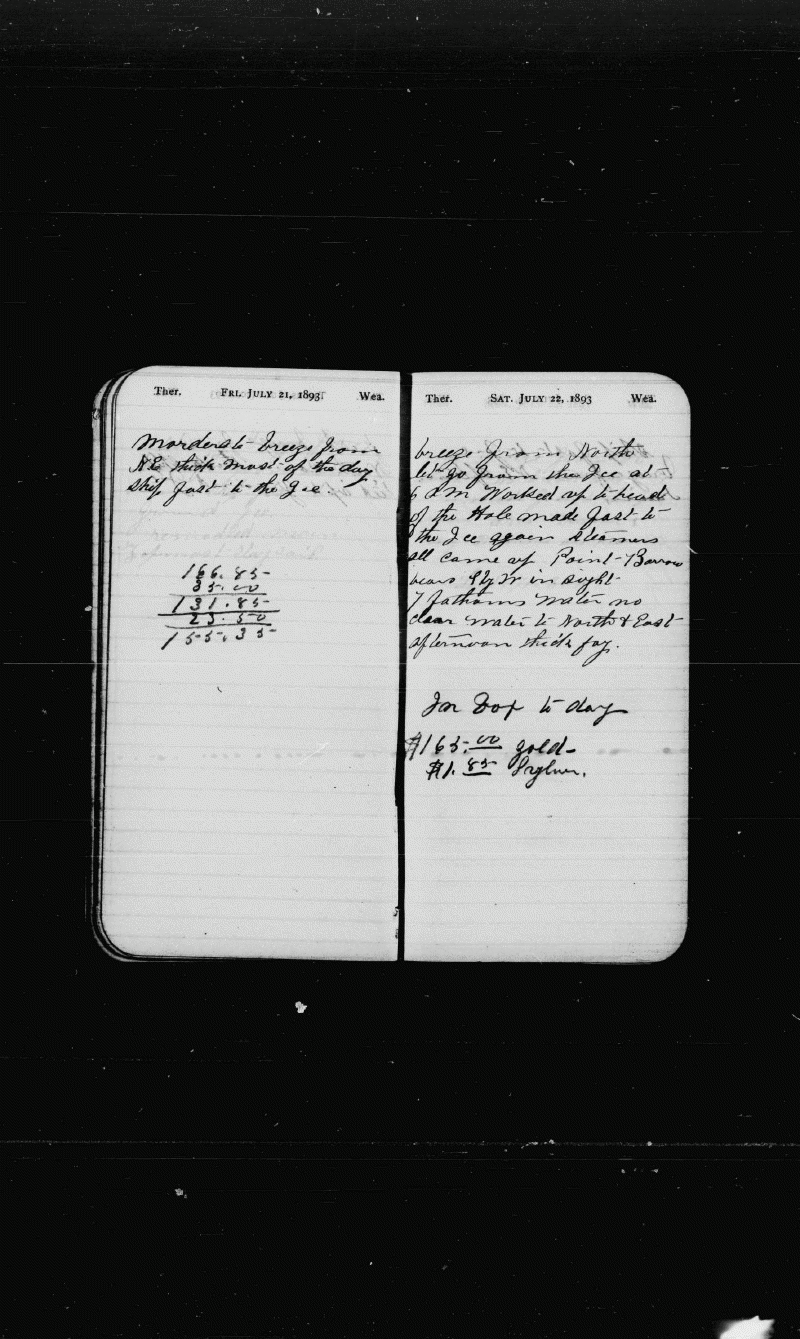 Ther. FRI. JULY 21, 1893. Wea.
Morderate breeze from
N.E. thick most of the day
ship fast to the Ice.
166.85
35.00
131.85
23.50
155.35
Ther. SAT. JULY 22, 1893 Wea.
breeze from North
let go from the Ice at
6 AM Worked up to head
of the Hole made fast to
the Ice again steamers
all came up Point Barrow
bears in sight
7 fathoms Water no
clear Water to North & East
afternoon thick fog.
In Box to day
$165.00 gold
$1.85